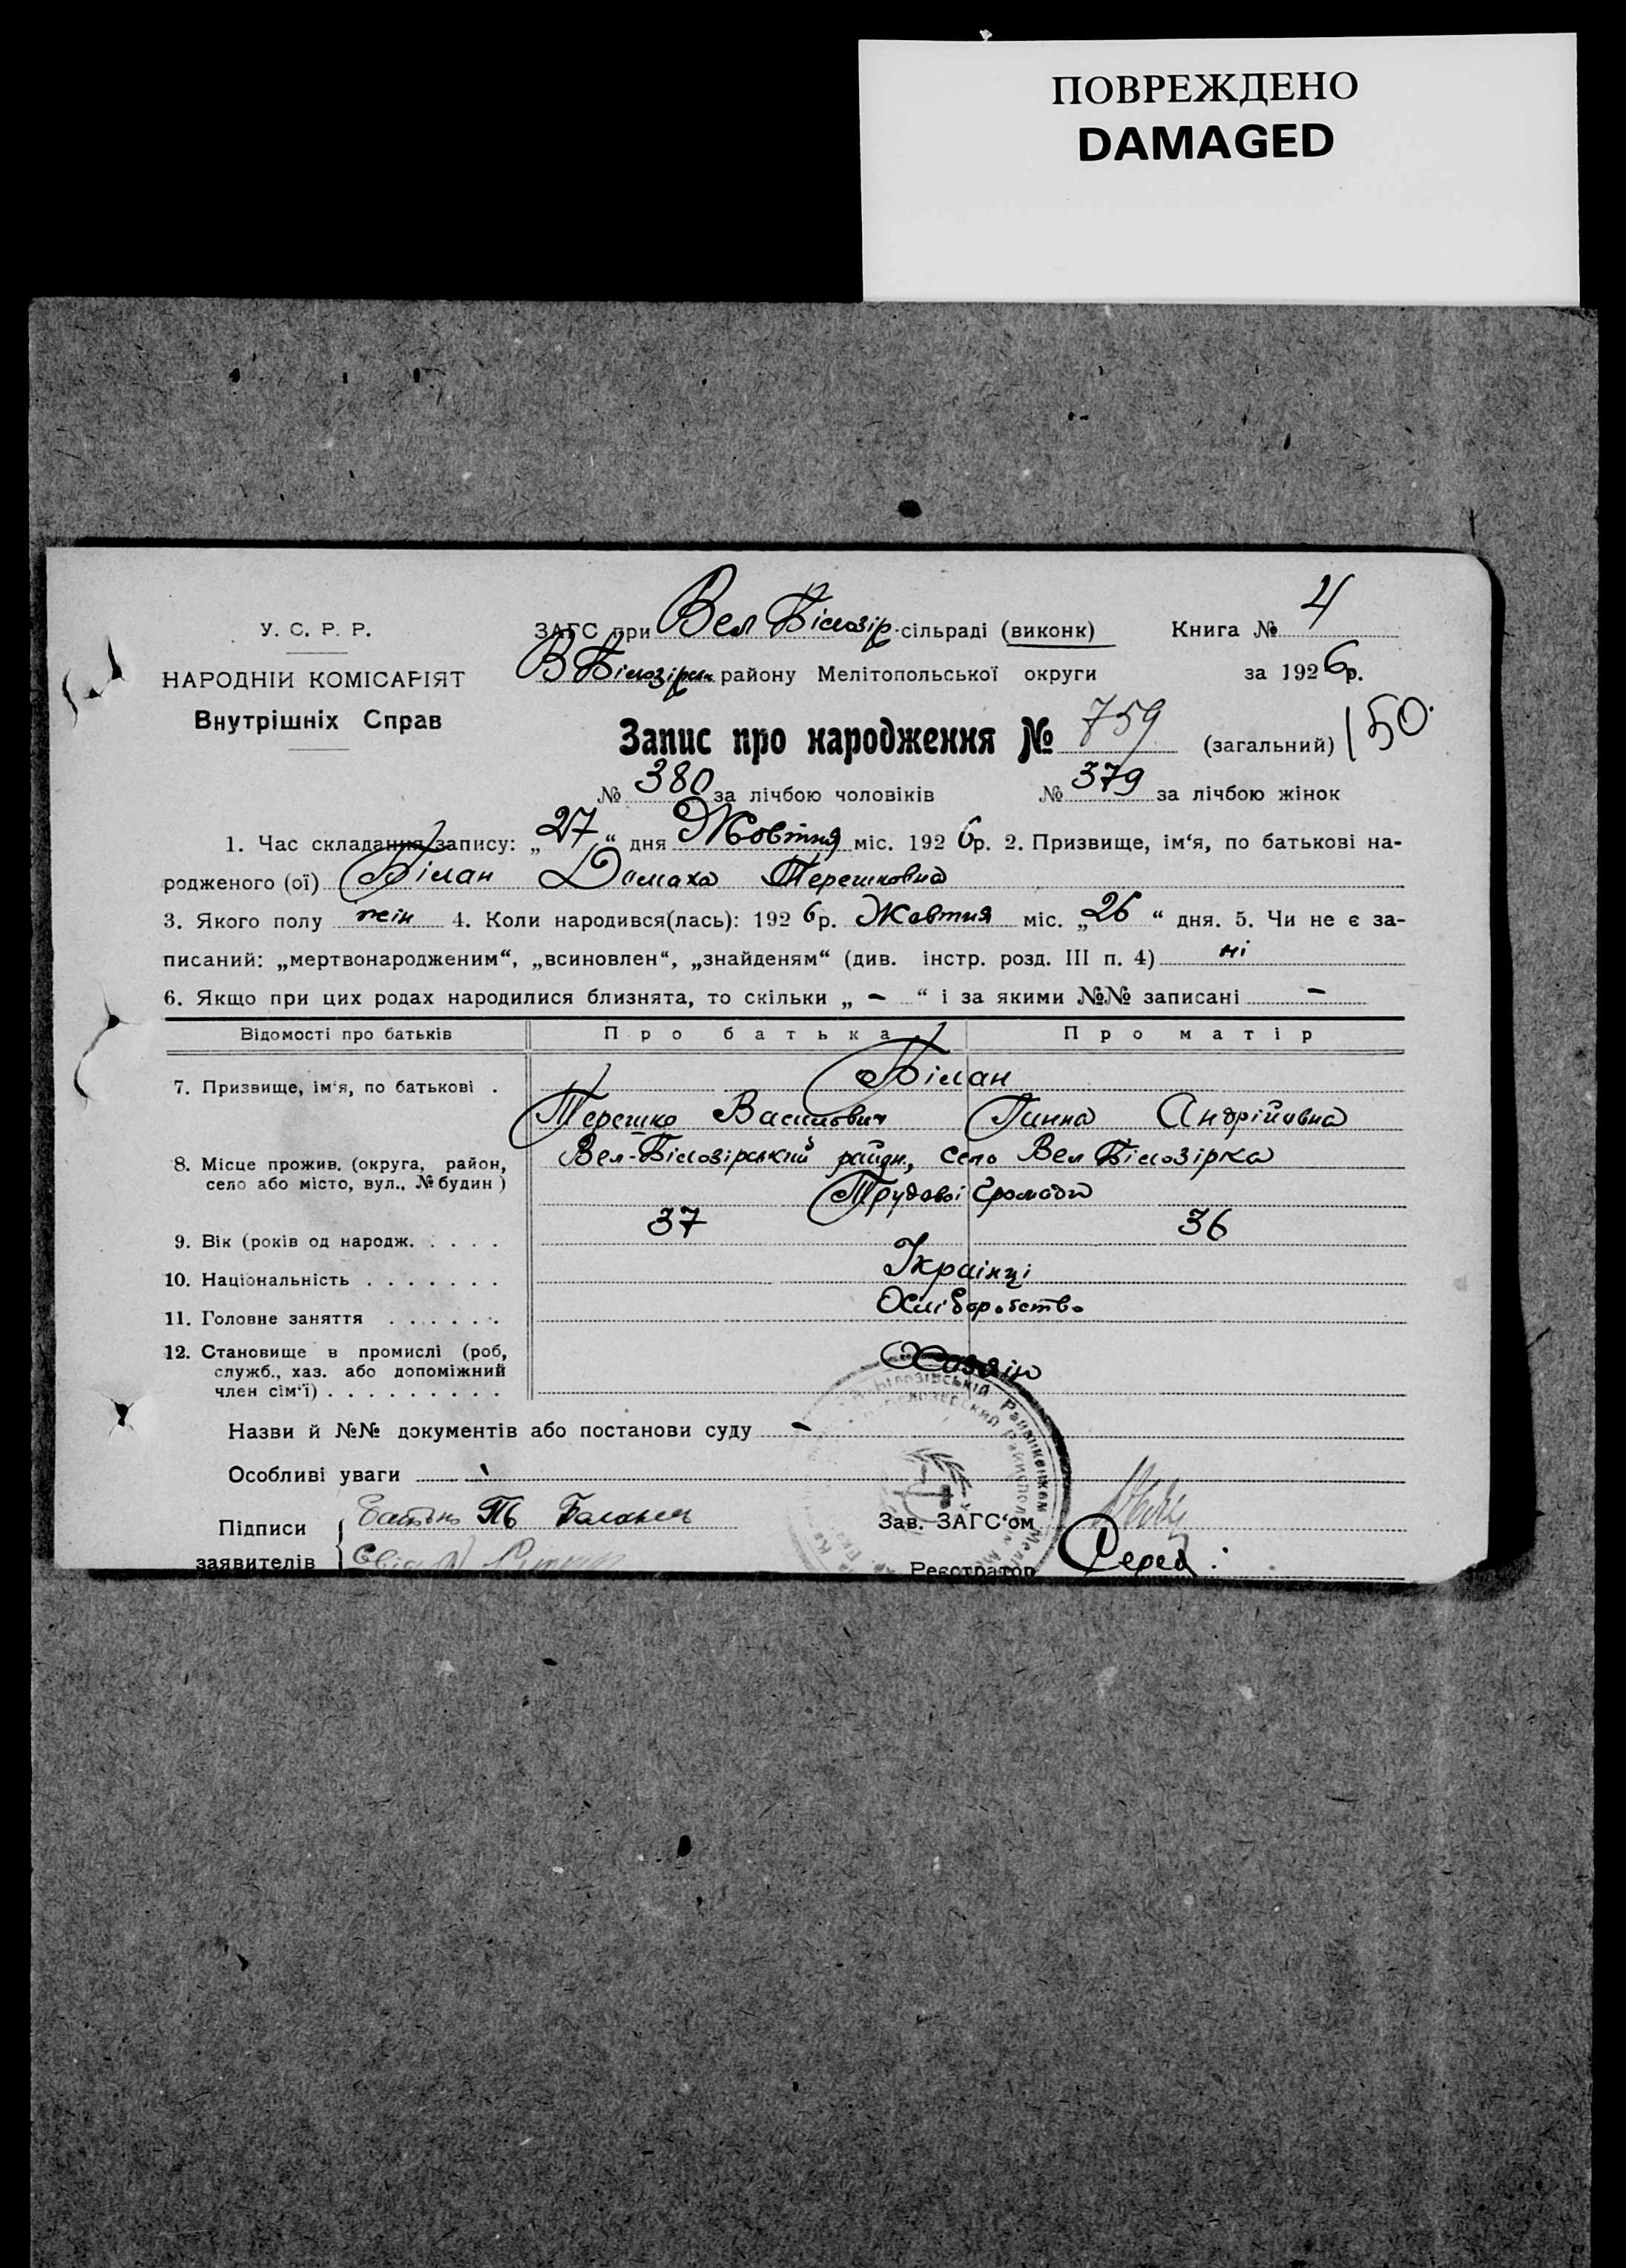 ПОВРЕЖДЕНО
DAMAGED
У. С. Р. Р.
НАРОДНІЙ КОМІСАРІЯТ
Внутрішніх Справ
ЗАГС при Вел Білозір. сільраді (виконк)
В Білозірськ району Мелітопольської округи
Книга № 4
за 1926 р.
Запис про народження № 759 (загальний) 150.
№ 380 за лічбою чоловіків № 379 за лічбою жінок
1. Час складання запису: „27“ дня Жовтня міс. 1926 р. 2. Призвище, ім‘я, по батькові на-
родженого (ої) Білан Домаха Терешковна
3. Якого полу жін 4. Коли народився(лась): 1926 р. Жовтня міс. „26“ дня. 5. Чи не є за-
писаний: „мертвонародженим“, „всиновлен“, „знайденям“ (див. інстр. розд. III п. 4) ні
6. Якщо при цих родах народилися близнята, то скільки „ – “ і за якими №№ записані –
Відомості про батьків Про батька Про матір
7. Призвище, ім‘я, по батькові . Білан
Терешко Васильович Ганна Андрійовна
8. Місце прожив. (округа, район, Вел-Білозірський район, село Вел Білозірка
село або місто, вул., № будин) Трудової Громади
9. Вік (років од народж. . . . . 37 36
10. Національність . . . . . . . Українці
11. Головне заняття . . . . . . Хліборобство
12. Становище в промислі (роб,
служб., хаз. або допоміжний
член сім‘ї) . . . . . . . . . Хазяїн
Назви й №№ документів або постанови суду –
Особливі уваги
Підписи
заявителів
Зав. ЗАГС‘ом
Реєстратор